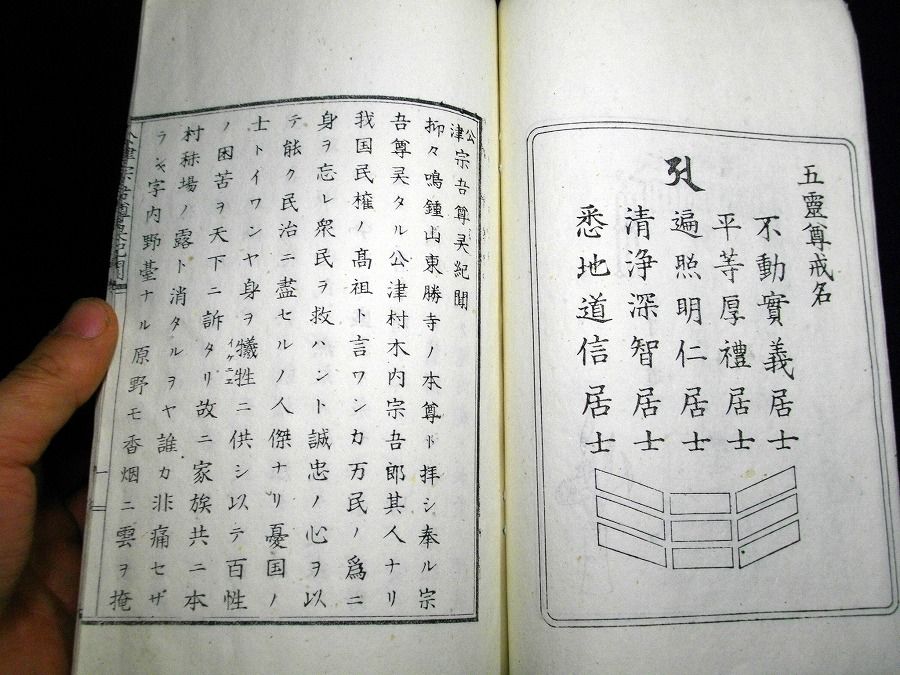 五靈尊戒名
不動實義居士
平等厚禮居士
遍照明仁居士
清浄深智居士
悉地道信居士
公津宗吾尊灵紀聞
抑々鳴鍾山東勝寺ノ本尊ト拝シ奉ル宗
吾尊灵タル公津村木内宗吾郎其人ナリ
我国民権ノ髙祖ト言ワンカ万民ノ為ニ
身ヲ忘レ衆民ヲ救ハント誠忠ノ心ヲ以
テ能ク民治ニ盡セルノ人傑ナリ憂国ノ
士トイワンヤ身ヲ犠牲ニ供シ以テ百性
イケニエ
ノ困苦ヲ天下ニ訴タリ故ニ家族共ニ本
村秣場ノ露ト消タルヲヤ誰カ非痛セザ
ラン字内野臺ナル原野モ香烟ニ雲ヲ掩
公津宗吾尊灵紀聞